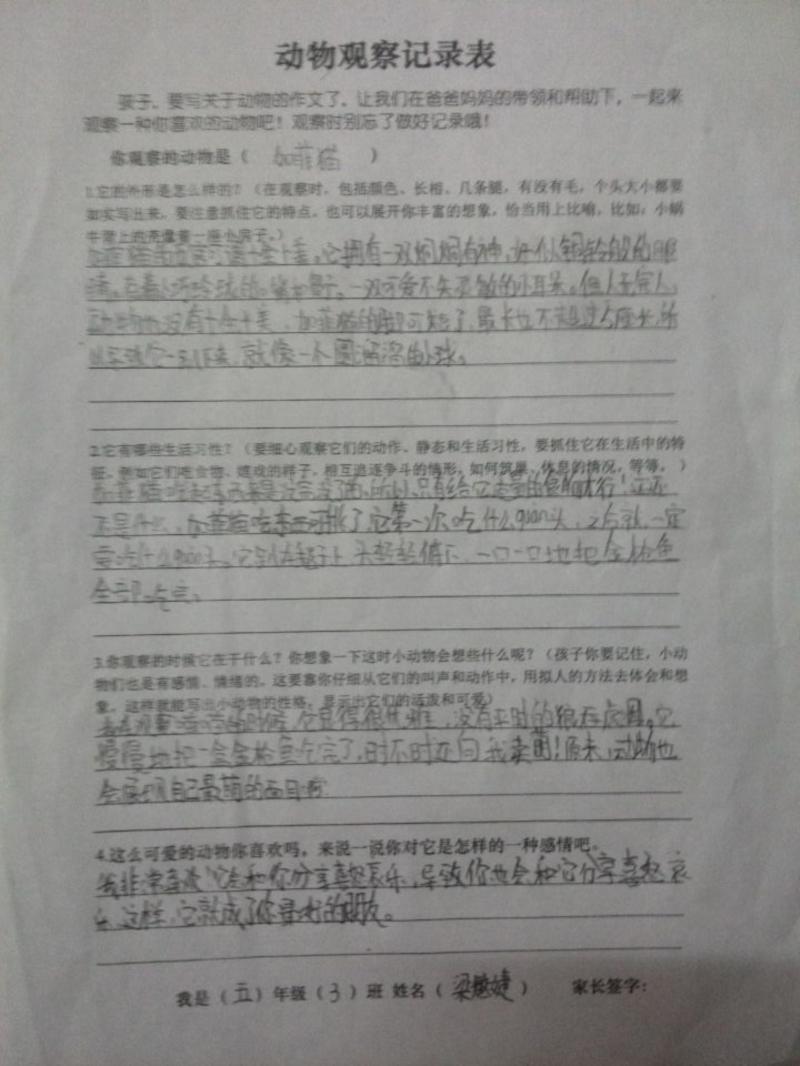 动物观察记录表
孩子，要写关于动物的作文了，让我们在爸爸妈妈的带领和帮助下，一起来
观察一种你喜欢的动物吧！观察时别忘了做好记录哦！
你观察的动物是（ 加菲猫 ）
1.它的外形是怎么样的？（在观察时，包括颜色、长相、几条腿，有没有毛，个头大小都要
如实写出来，要注意抓住它的特点，也可以展开你丰富的想象，恰当用上比喻，比如：小蜗
牛背上的壳像着一座小房子。）
加菲猫 十全十美，它拥有一双炯炯有神，好似铜铃般的眼
睛。 一双可爱不失灵敏的小耳朵。但人无完人，
动物也没有十全十美，加菲猫的脚可短了，最长也不超过5厘米，所
以 就像一个圆溜溜的小球。
2.它有哪些生活习性？（要细心观察它们的动作、静态和生活习性，要抓住它在生活中的特
征，例如它们吃食物、嬉戏的样子，相互追逐争斗的情形，如何筑巢、休息的情况，等等。）
加菲猫吃起东西来是没完没了的，所以，只有给它 才行！这还
不是什么，加菲猫吃东西可挑了，它第一次吃什么 ，之后就一定
要吃什么 头轻轻低下，一口一口地把金枪鱼
全部吃完。
3.你观察的时候它在干什么？你想象一下这时小动物会想些什么呢？（孩子你要记住，小动
物们也是有感情、情绪的，这要靠你仔细从它们的叫声和动作中，用拟人的方法去体会和想
象，这样就能写出小动物的性格，显示出它们的活泼和可爱）
的时候，它显得很优雅，没有平时的狼吞虎咽。它
慢慢地把一盒金枪鱼吃完了，时不时还向我卖萌！原来，动物也
会展现自己最萌的一面啊
4.这么可爱的动物你喜欢吗，来说一说你对它是怎样的一种感情吧。
我非常喜欢 它会和你分享喜怒哀乐，导致你也会和它分享喜怒哀
乐，这样，它就成了你最好的朋友。
我是（五）年级（3）班 姓名（梁 婕） 家长签字：